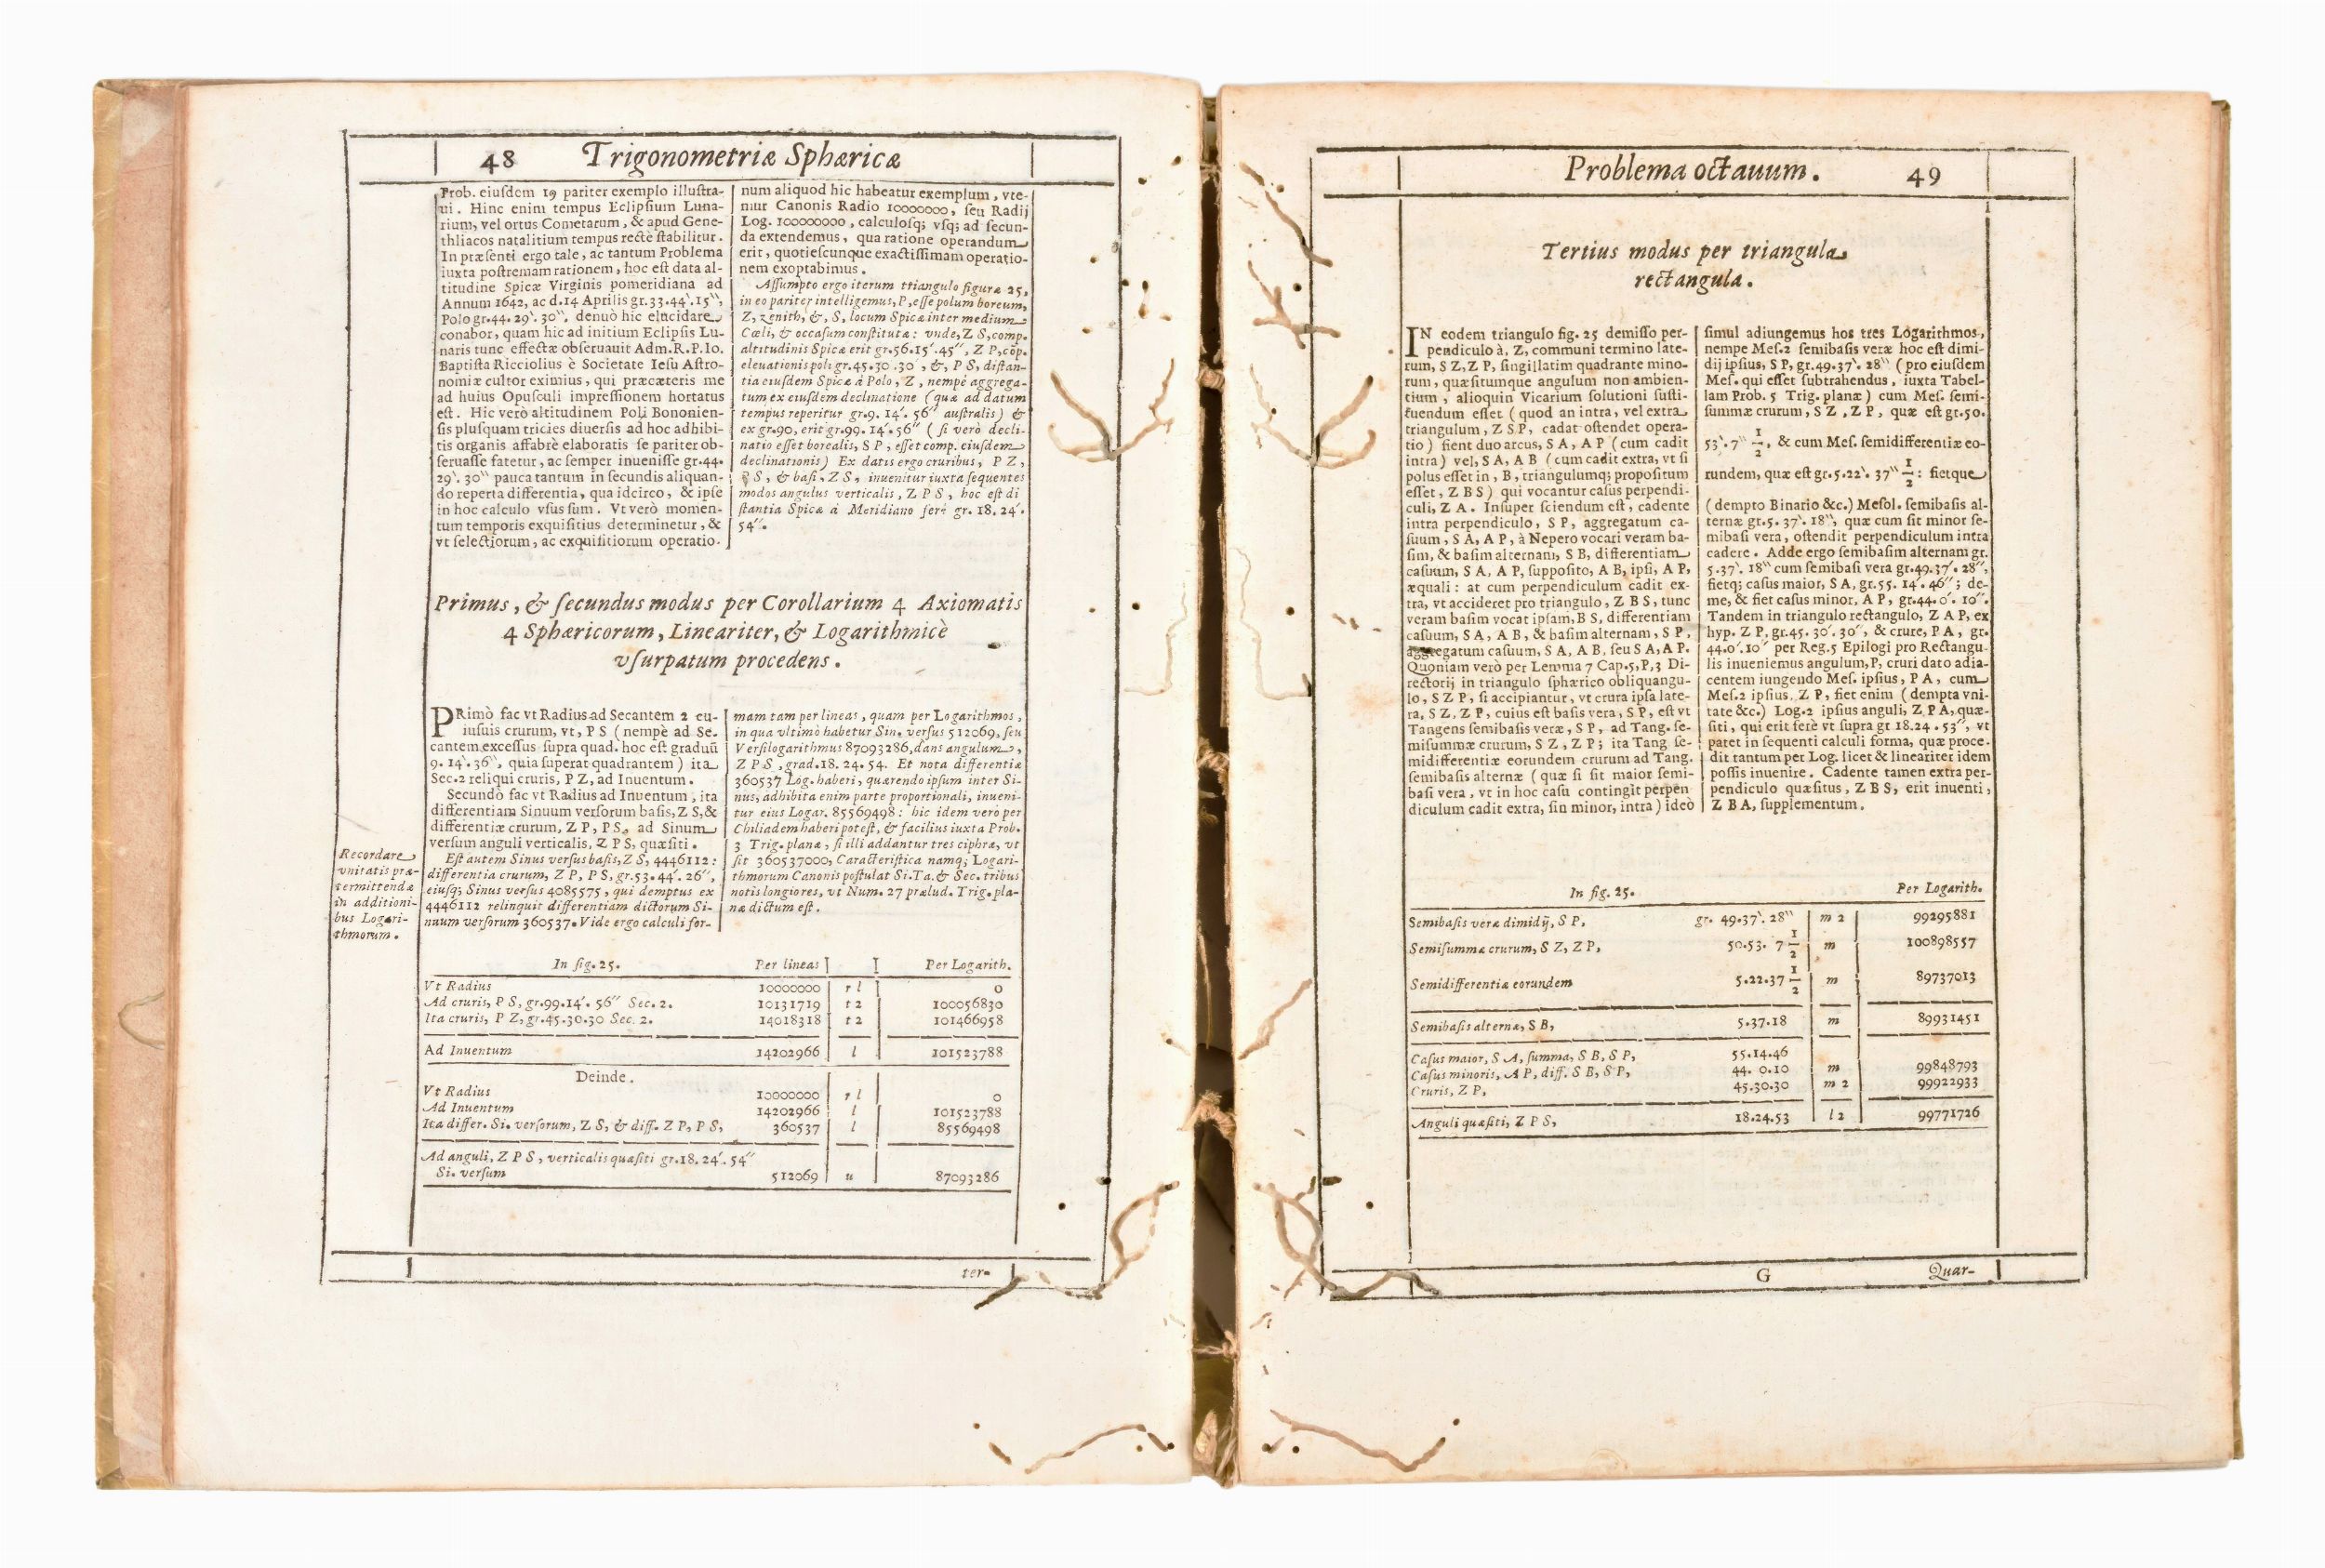 48 Trigonometriæ Sphæricæ
Prob. eiusdem 19 pariter exemplo illustra-
ui. Hinc enim tempus Eclipsium Luna-
rium, vel ortus Cometarum, & apud Gene-
thliacos natalitium tempus rectè stabilitur.
In præsenti ergo tale, ac tantum Problema
iuxta postremam rationem, hoc est data al-
titudine Spicæ Virginis pomeridiana ad
Annum 1642, ac d.14 Aprilis gr.33.44`.15``,
Polo gr.44. 29`. 30``. denuò hic elucidare
conabor, quam hic ad initium Eclipsis Lu-
naris tunc effectæ obseruauit Adm.R.P.Io.
Baptista Ricciolius è Societate Iesu Astro-
nomiæ cultor eximius, qui præcæteris me
ad huius Opusculi impressionem hortatus
est. Hic verò altitudinem Poli Bononien-
sis plusquam tricies diuersis ad hoc adhibi-
tis organis affabrè elaboratis se pariter ob-
seruasse fatetur, ac semper inuenisse gr.44.
29`. 30`` pauca tantum in secundis aliquan-
do reperta differentia, qua idcirco, & ipse
in hoc calculo vsus sum. Vt verò momen-
tum temporis exquisitius determinetur, &
vt selectiorum, ac exquisitiorum operatio-
num aliquod hic habeatur exemplum, vte-
mur Canonis Radio 10000000, seu Radij
Log. 100000000, calculosq; vsq; ad secun-
da extendemus, qua ratione operandum
erit, quotiescunque exactissimam operatio-
nem exoptabimus.
Assumpto ergo iterum ttiangulo figuræ 25,
in eo pariter intelligemus, P, esse polum boreum,
Z, zenith, &, S, locum Spicæ inter medium
Cæli, & occasum constitutæ: vnde, Z S, comp.
altitudinis Spicæ erit gr.56.15´.45´´, Z P, cõp.
eleuationis poli gr.45.30.30´´, &, P S, distan-
tia eiusdem Spicæ à Polo, Z, nempè aggrega-
tum ex eiusdem declinatione (quæ ad datum
tempus reperitur gr.9. 14´. 56´´ australis) &
ex gr.90, erit gr.99. 14´. 56´´ (si verò decli-
natio esset borealis, S P, esset comp. eiusdem
declinationis) Ex datis ergo cruribus, P Z,
P S, & basi, Z S, inuenitur iuxta sequentes
modos angulus verticalis, Z P S, hoc est di
stantia Spicæ à Meridiano ferè gr. 18. 24´.
54´´.
Primus, & secundus modus per Corollarium 4 Axiomatis
4 Sphæricorum, Lineariter, & Logarithmicè
vsurpatum procedens.
PRimò fac vt Radius ad Secantem 2 cu-
iusuis crurum, vt, P S (nempè ad Se-
cantem excessus supra quad. hoc est graduũ
9. 14`. 36``, quia superat quadrantem) ita
Sec.2 reliqui cruris, P Z, ad Inuentum.
Secundò fac vt Radius ad Inuentum, ita
differentiam Sinuum versorum basis, Z S, &
differentiæ crurum, Z P, P S, ad Sinum
versum anguli verticalis, Z P S, quæsiti.
Est autem Sinus versus basis, Z S, 4446112:
differentia crurum, Z P, P S, gr.53.44´. 26´´,
eiusq; Sinus versus 4085575, qui demptus ex
4446112 relinquit differentiam dictorum Si-
nuum versorum 360537. Vide ergo calculi for-
Recordare
vnitatis præ-
termittendæ
in additioni-
bus Logari-
thmorum.
mam tam per lineas, quam per Logarithmos,
in qua vltimò habetur Sin. versus 512069, seu
Versilogarithmus 87093286, dans angulum,
Z P S, grad.18. 24. 54. Et nota differentiæ
360537 Log. haberi, quærendo ipsum inter Si-
nus, adhibita enim parte proportionali, inueni-
tur eius Logar. 85569498: hic idem verò per
Chiliadem haberi potest, & facilius iuxta Prob.
3 Trig. planæ, si illi addantur tres ciphræ, vt
sit 360537000, Caracteristica namq; Logari-
thmorum Canonis postulat Si.Ta. & Sec. tribus
notis longiores, vt Num. 27 prælud. Trig. pla-
næ dictum est.
In fig. 25. Per lineas Per Logarith.
Vt Radius 10000000 r l 0
Ad cruris, P S, gr.99.14´. 56´´ Sec. 2. 10131719 t 2 100056830
Ita cruris, P Z, gr.45.30.30 Sec. 2. 14018318 t 2 101466958
Ad Inuentum 14202966 l 101523788
Deinde.
Vt Radius 10000000 r l 0
Ad Inuentum 14202966 l 101523788
Ita differ. Si. versorum, Z S, & diff. Z P, P S, 360537 l 85569498
Ad anguli, Z P S, verticalis quæsiti gr.18. 24´. 54´´
Si. versum 512069 u 87093286
ter-
Problema octauum. 49
Tertius modus per triangula
rectangula.
IN eodem triangulo fig. 25 demisso per-
pendiculo à, Z, communi termino late-
rum, S Z, Z P, singillatim quadrante mino-
rum, quæsitumque angulum non ambien-
tium, alioquin Vicarium solutioni susti-
tuendum esset (quod an intra, vel extra
triangulum, Z S P, cadat ostendet opera-
tio) fient duo arcus, S A, A P (cum cadit
intra) vel, S A, A B (cum cadit extra, vt si
polus esset in, B, triangulumq; propositum
esset, Z B S) qui vocantur casus perpendi-
culi, Z A. Insuper sciendum est, cadente
intra perpendiculo, S P, aggregatum ca-
suum, S A, A P, à Nepero vocari veram ba-
sim, & basim alternam, S B, differentiam
casuum, S A, A P, supposito, A B, ipsi, A P,
æquali: at cum perpendiculum cadit ex-
tra, vt accideret pro triangulo, Z B S, tunc
veram basim vocat ipsam, B S, differentiam
casuum, S A, A B, & basim alternam, S P,
aggregatum casuum, S A, A B, seu S A, A P.
Quoniam verò per Lemma 7 Cap.5, P,3 Di-
rectorij in triangulo sphærico obliquangu-
lo, S Z P, si accipiantur, vt crura ipsa late-
ra, S Z, Z P, cuius est basis vera, S P, est vt
Tangens semibasis veræ, S P, ad Tang. se-
misummæ crurum, S Z, Z P; ita Tang se-
midifferentiæ eorundem crurum ad Tang.
semibasis alternæ (quæ si sit maior semi-
basi vera, vt in hoc casu contingit perpen
diculum cadit extra, sin minor, intra) ideò
simul adiungemus hos tres Logarithmos,
nempe Mes.2 semibasis veræ hoc est dimi-
dij ipsius, S P, gr.49.37`. 28`` (pro eiusdem
Mes. qui esset subtrahendus, iuxta Tabel-
lam Prob. 5 Trig. planæ) cum Mes. semi-
summæ crurum, S Z, Z P, quæ est gr.50.
53`. 7`` 1/2, & cum Mes. semidifferentiæ eo-
rundem, quæ est gr.5.22`. 37`` 1/2: fietque
(dempto Binario &c.) Mesol. semibasis al-
ternæ gr.5. 37`. 18``, quæ cum sit minor se-
mibasi vera, ostendit perpendiculum intra
cadere. Adde ergo semibasim alternam gr.
5.37`. 18`` cum semibasi vera gr.49.37`. 28``,
fietq; casus maior, S A, gr.55. 14`. 46``; de-
me, & fiet casus minor, A P, gr.44.0`. 10``.
Tandem in triangulo rectangulo, Z A P, ex
hyp. Z P, gr.45. 30`. 30``, & crure, P A, gr.
44.0`.10`` per Reg.5 Epilogi pro Rectangu-
lis inueniemus angulum, P, cruri dato adia-
centem iungendo Mes. ipsius, P A, cum
Mes.2 ipsius, Z P, fiet enim (dempta vni-
tate &c.) Log.2 ipsius anguli, Z P A, quæ-
siti, qui erit ferè vt supra gr 18.24. 53``, vt
patet in sequenti calculi forma, quæ proce-
dit tantum per Log. licet & lineariter idem
possis inuenire. Cadente tamen extra per-
pendiculo quæsitus, Z B S, erit inuenti,
Z B A, supplementum.
In fig. 25. Per Logarith.
Semibasis veræ dimidij, S P, gr. 49.37`. 28`` m 2 99295881
Semisummæ crurum, S Z, Z P, 50.53. 7 1/2 m 100898557
Semidifferentiæ eorundem 5.22.37 1/2 m 89737013
Semibasis alternæ, S B, 5.37.18 m 89931451
Casus maior, S A, summa, S B, S P, 55.14.46
Casus minoris, A P, diff. S B, S P, 44. 0.10 m 99848793
Cruris, Z P, 45.30.30 m 2 99922933
Anguli quæsiti, Z P S, 18.24.53 l 2 99771726
G Quar-